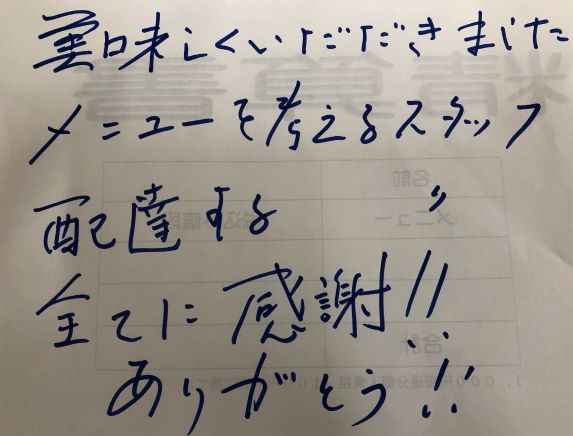 美味しくいただきました
メニューを考えるスタッフ
配達する 〃
全てに感謝!!
ありがとう!!
精算書
名前
メニュー
合計